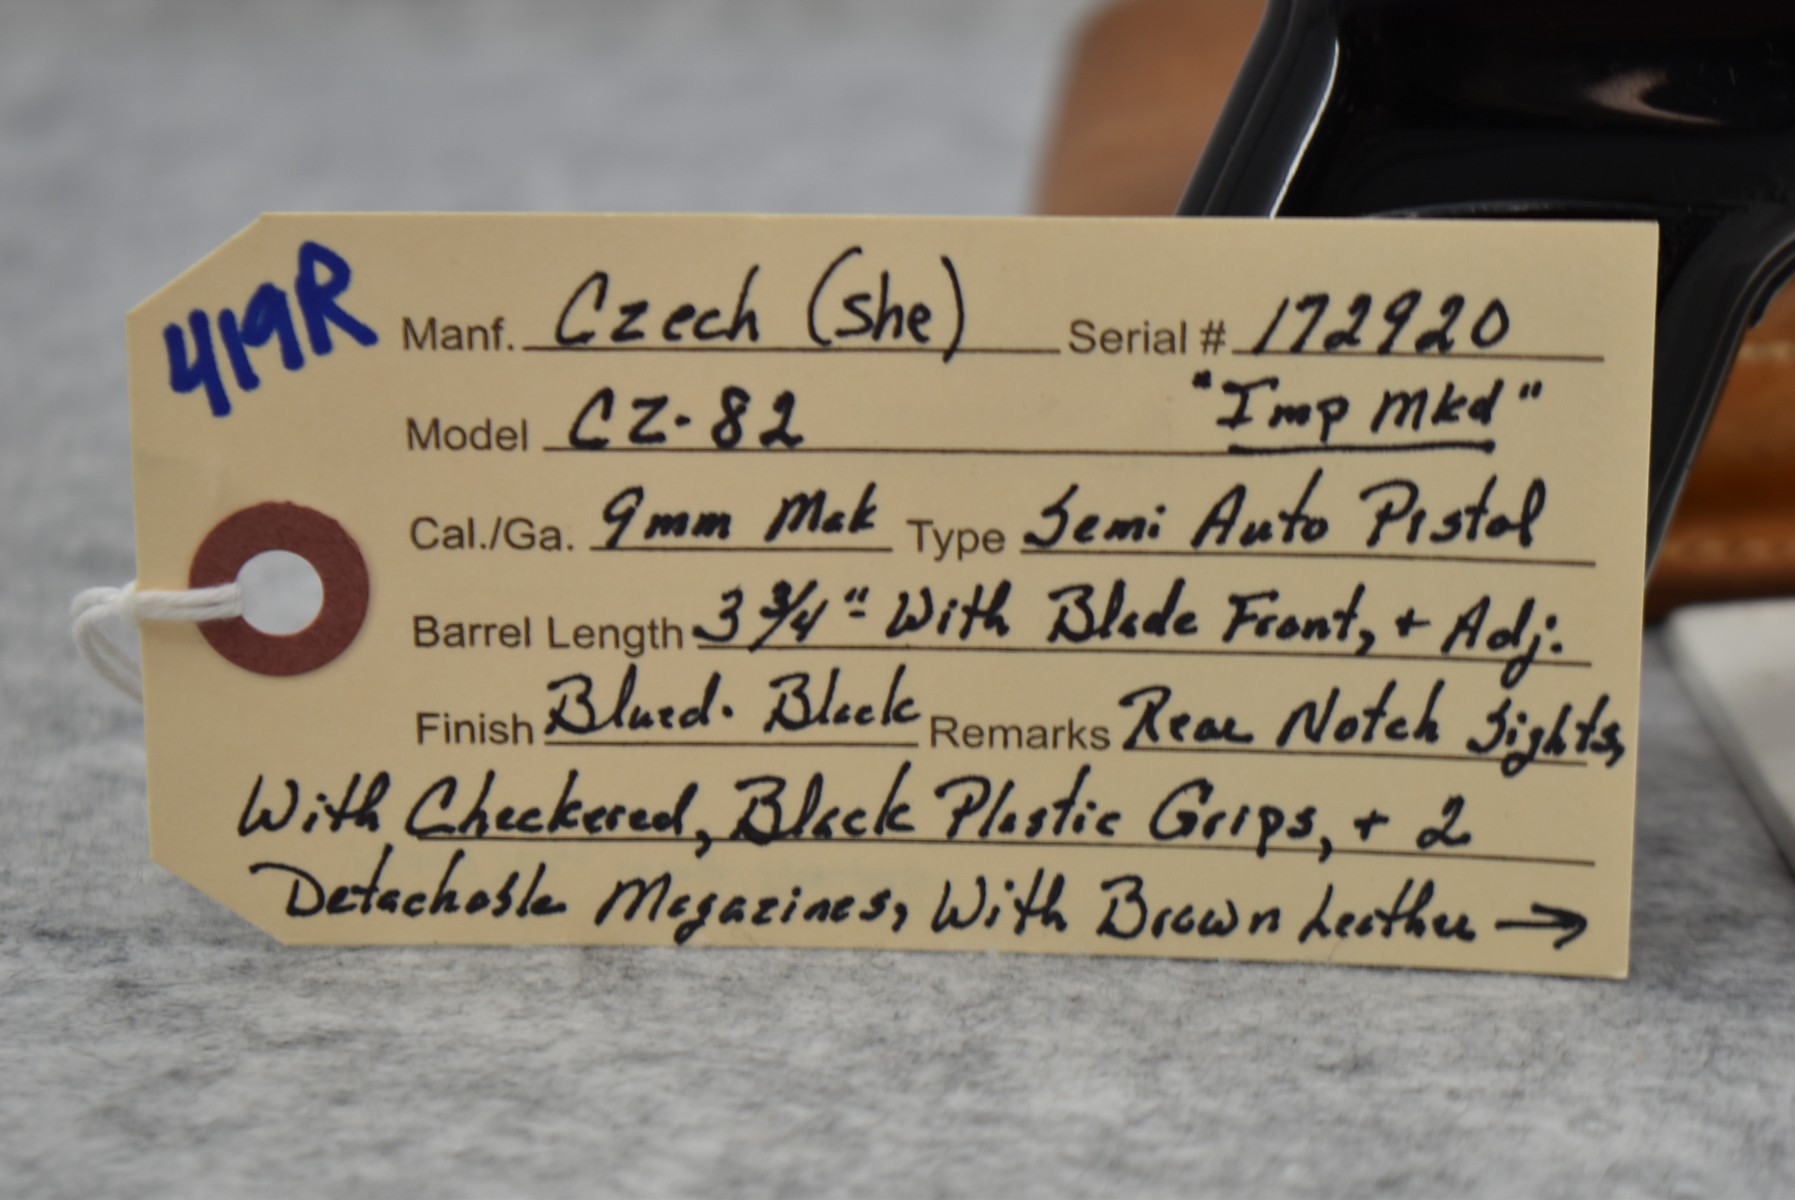 419R
Manf. Czech (she) Serial # 172920
Model CZ-82 "Imp Mkd"
Cal./Ga. 9mm Mak Type Semi Auto Pistol
Barrel Length 3 3/4" With Blade Front, + Adj.
Finish Blued. Black Remarks Rear Notch Sights,
With Checkered, Black Plastic Grips, + 2
Detachable Magazines, With Brown Leather →